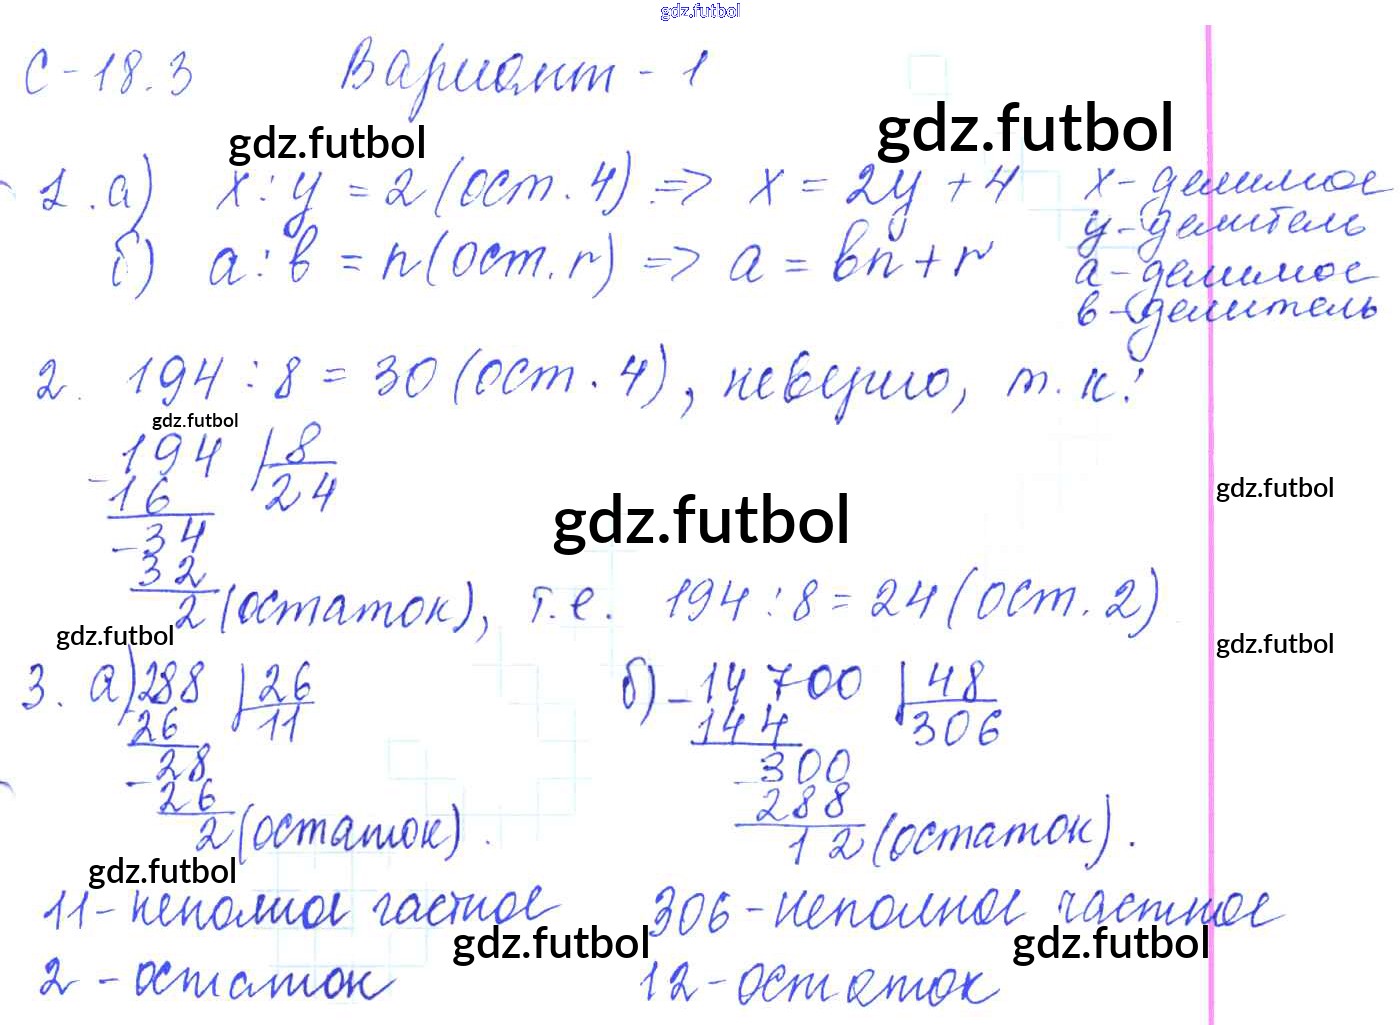 gdz.futbol
С-18.3 Вариант - 1
gdz.futbol gdz.futbol
1. а) x : y = 2 (ост. 4) => x = 2y + 4 x - делимое
y - делитель
б) a : в = n (ост. r) => a = вn + r а - делимое
в - делитель
2. 194 : 8 = 30 (ост. 4), неверно, т.к:
gdz.futbol
- 194 | 8
16 24
gdz.futbol
gdz.futbol
- 34
32
2 (остаток), т.е. 194 : 8 = 24 (ост. 2)
gdz.futbol gdz.futbol
3. а) 288 | 26 б) - 14 700 | 48
26 11 144 306
- 28 - 300
26 288
2 (остаток). 12 (остаток).
gdz.futbol
11 - неполное частное 306 - неполное частное
gdz.futbol gdz.futbol
2 - остаток 12 - остаток